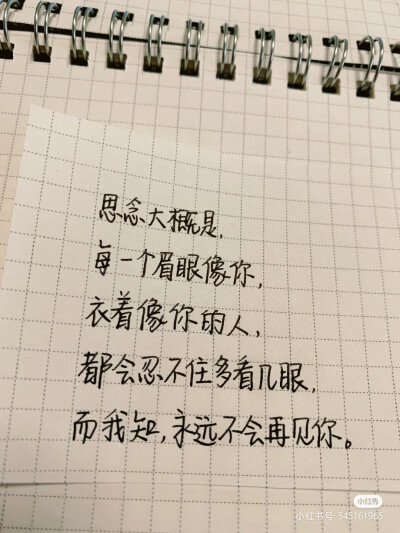 思念大概是，
每一个眉眼像你，
衣着像你的人，
都会忍不住多看几眼，
而我知，永远不会再见你。
小红书
小红书号：545161965